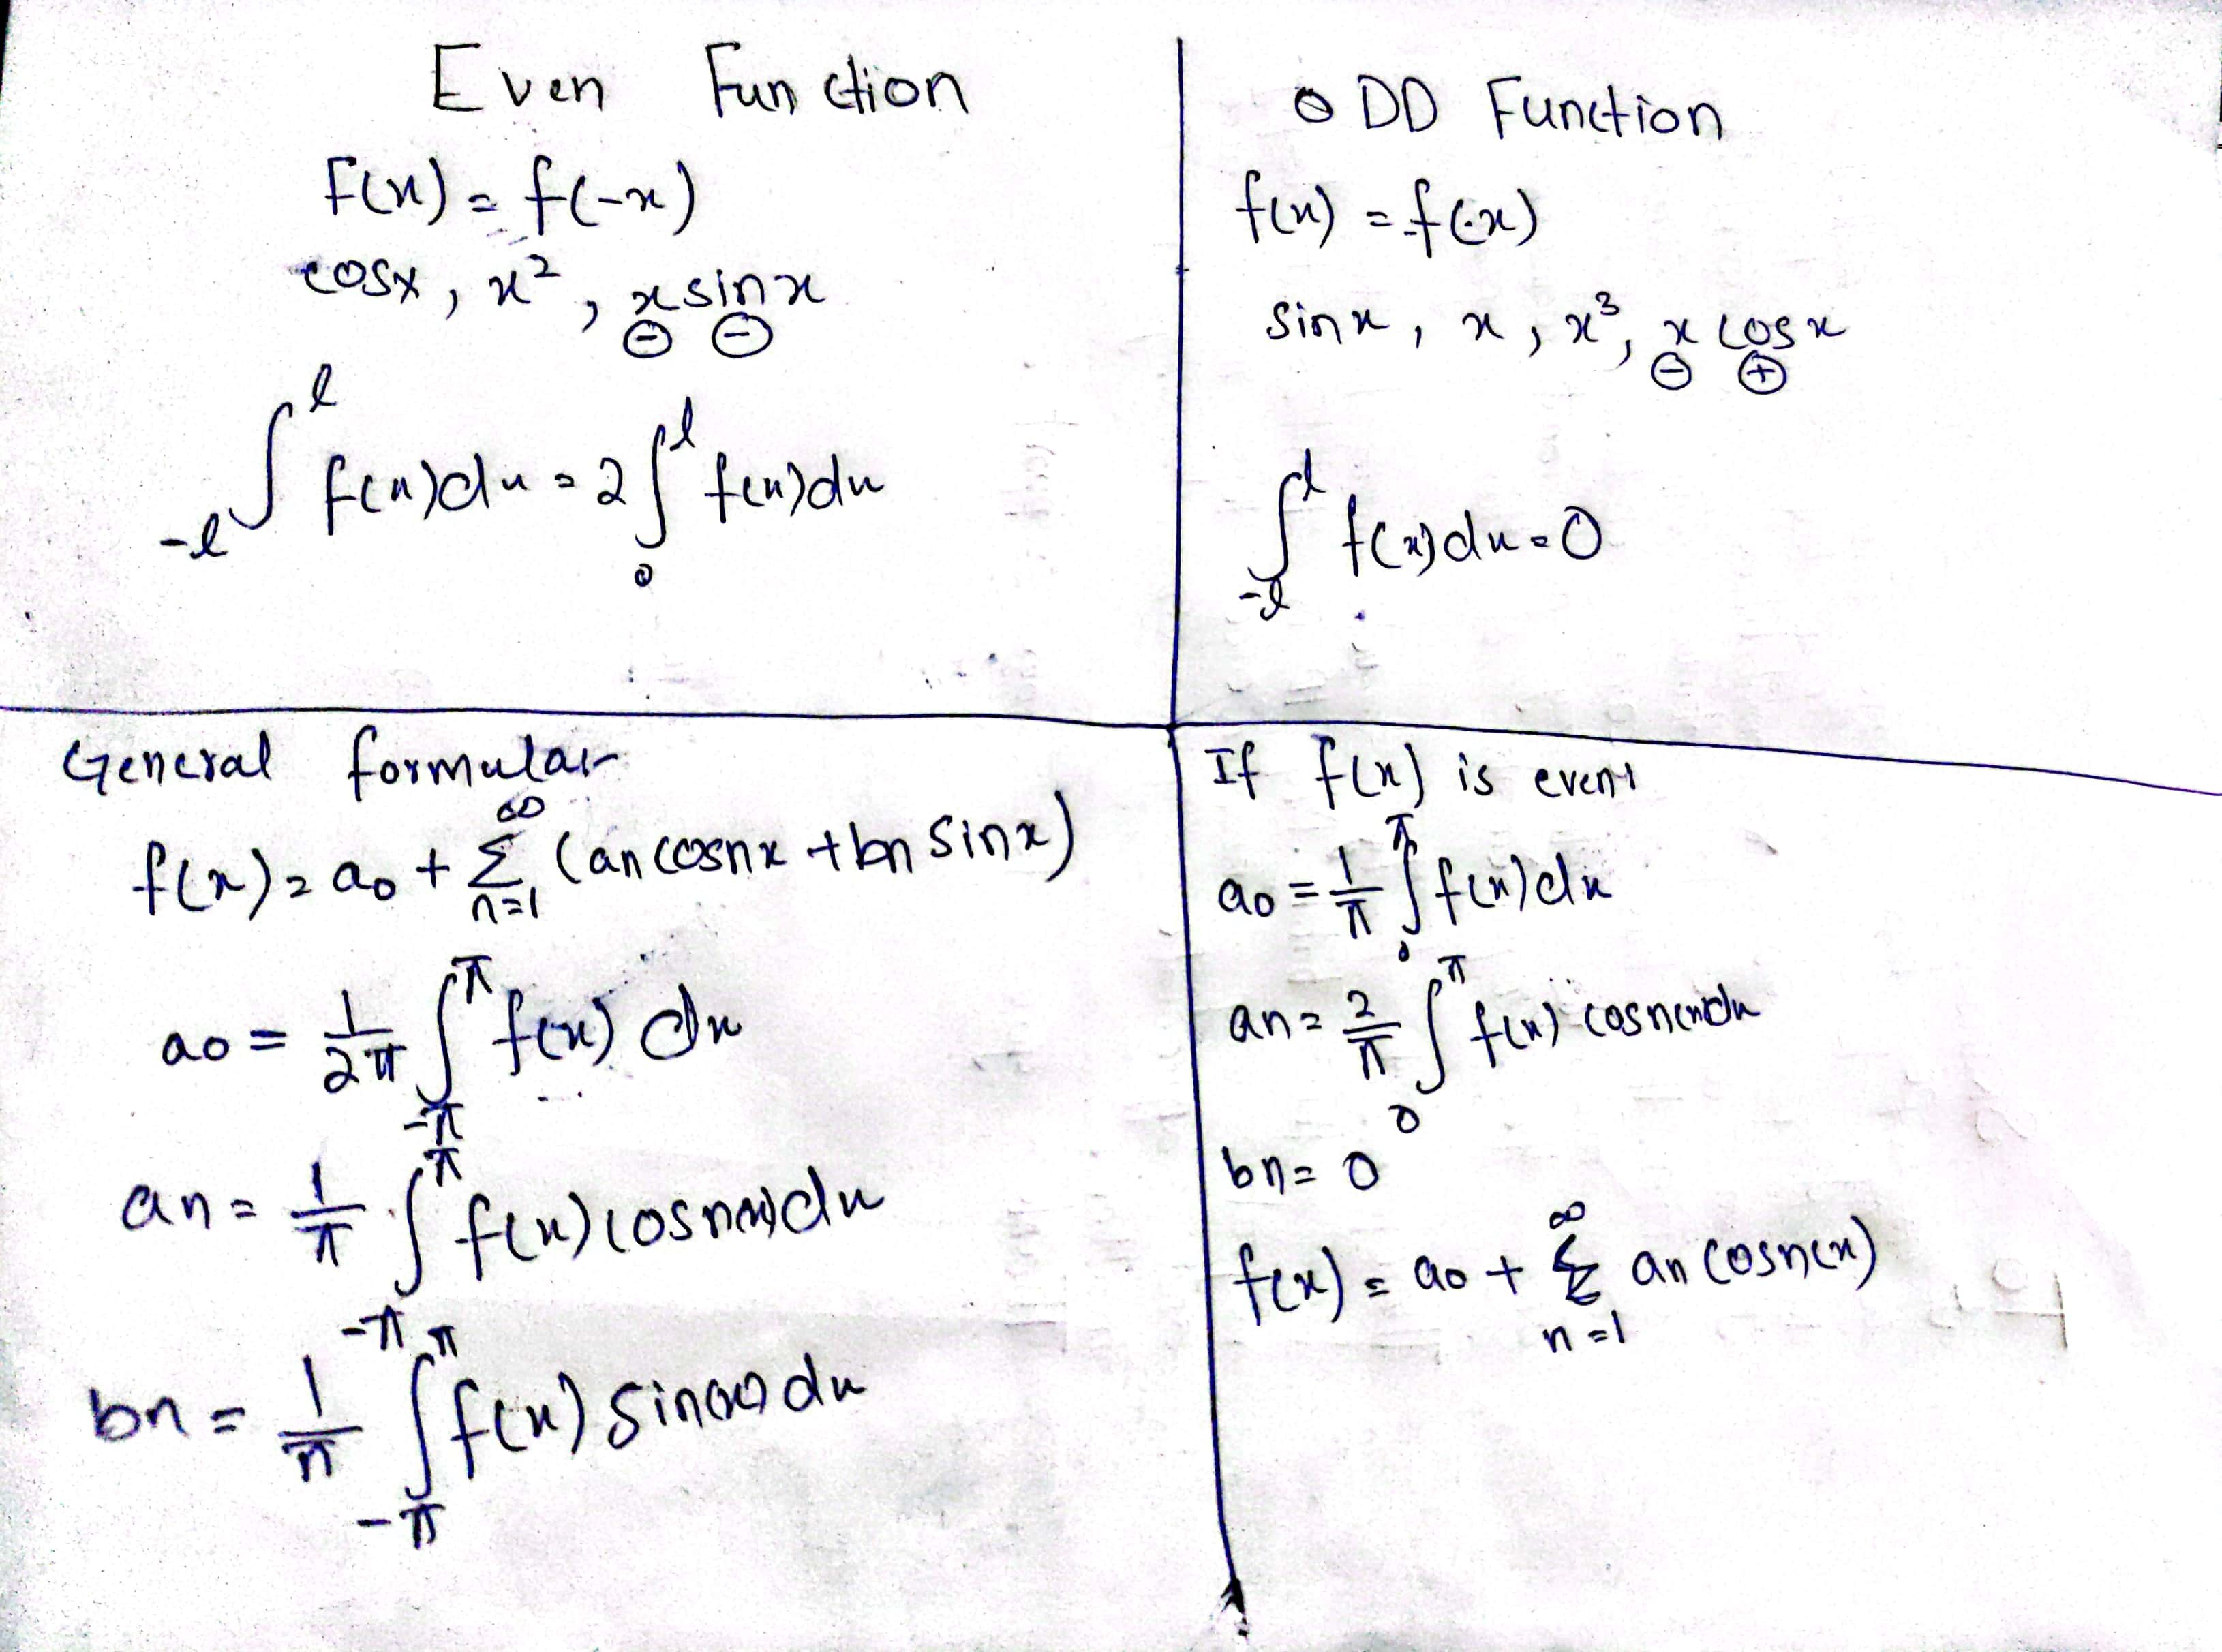 Even Function
F(x) = f(-x)
cosx, x², x sinx
⊖ ⊖
∫_{-l}^{l} f(x)dx = 2∫_{0}^{l} f(x)dx
ODD Function
f(x) = f(-x)
sinx, x, x³, x cosx
⊖ ⊕
∫_{-l}^{l} f(x)dx = 0
General formular
f(x) = a₀ + Σ_{n=1}^{∞} (an cosnx + bn sinx)
a₀ = 1/2π ∫_{-π}^{π} f(x) dx
an = 1/π ∫_{-π}^{π} f(x) cosn(x)dx
bn = 1/π ∫_{-π}^{π} f(x) sin(x) dx
If f(x) is even
a₀ = 1/π ∫_{0}^{π} f(x)dx
an = 2/π ∫_{0}^{π} f(x) cosn(x)dx
bn = 0
f(x) = a₀ + Σ_{n=1}^{∞} an cosn(x)